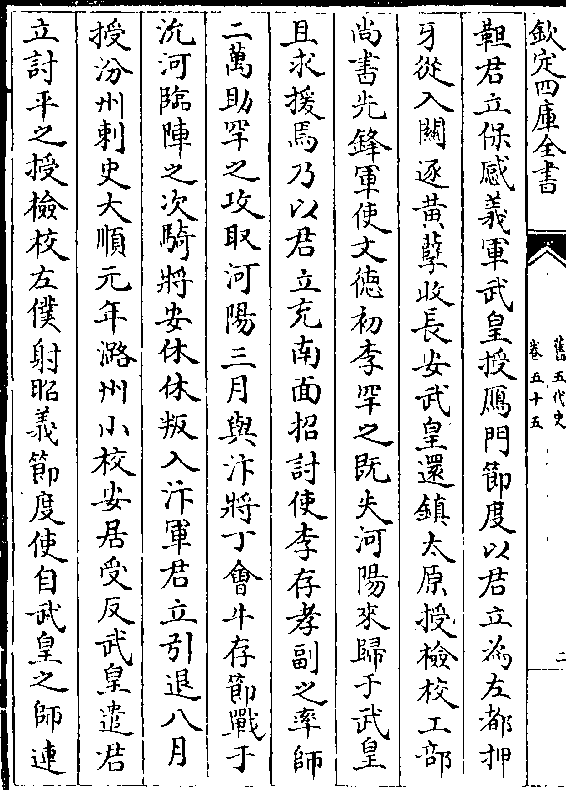 欽定四庫全書
舊五代史
卷五十五
二
靼君立保感義軍武皇授鴈門節度以君立為左都押
牙從入關逐黃孽收長安武皇還鎮太原授檢校工部
尚書先鋒軍使文德初李罕之既失河陽來歸于武皇
且求援焉乃以君立充南面招討使李存孝副之率師
二萬助罕之攻取河陽三月與汴將丁會牛存節戰于
沇河臨陣之次騎將安休休叛入汴軍君立引退八月
授汾州刺史大順元年潞州小校安居受反武皇遣君
立討平之授檢校左僕射昭義節度使自武皇之師連